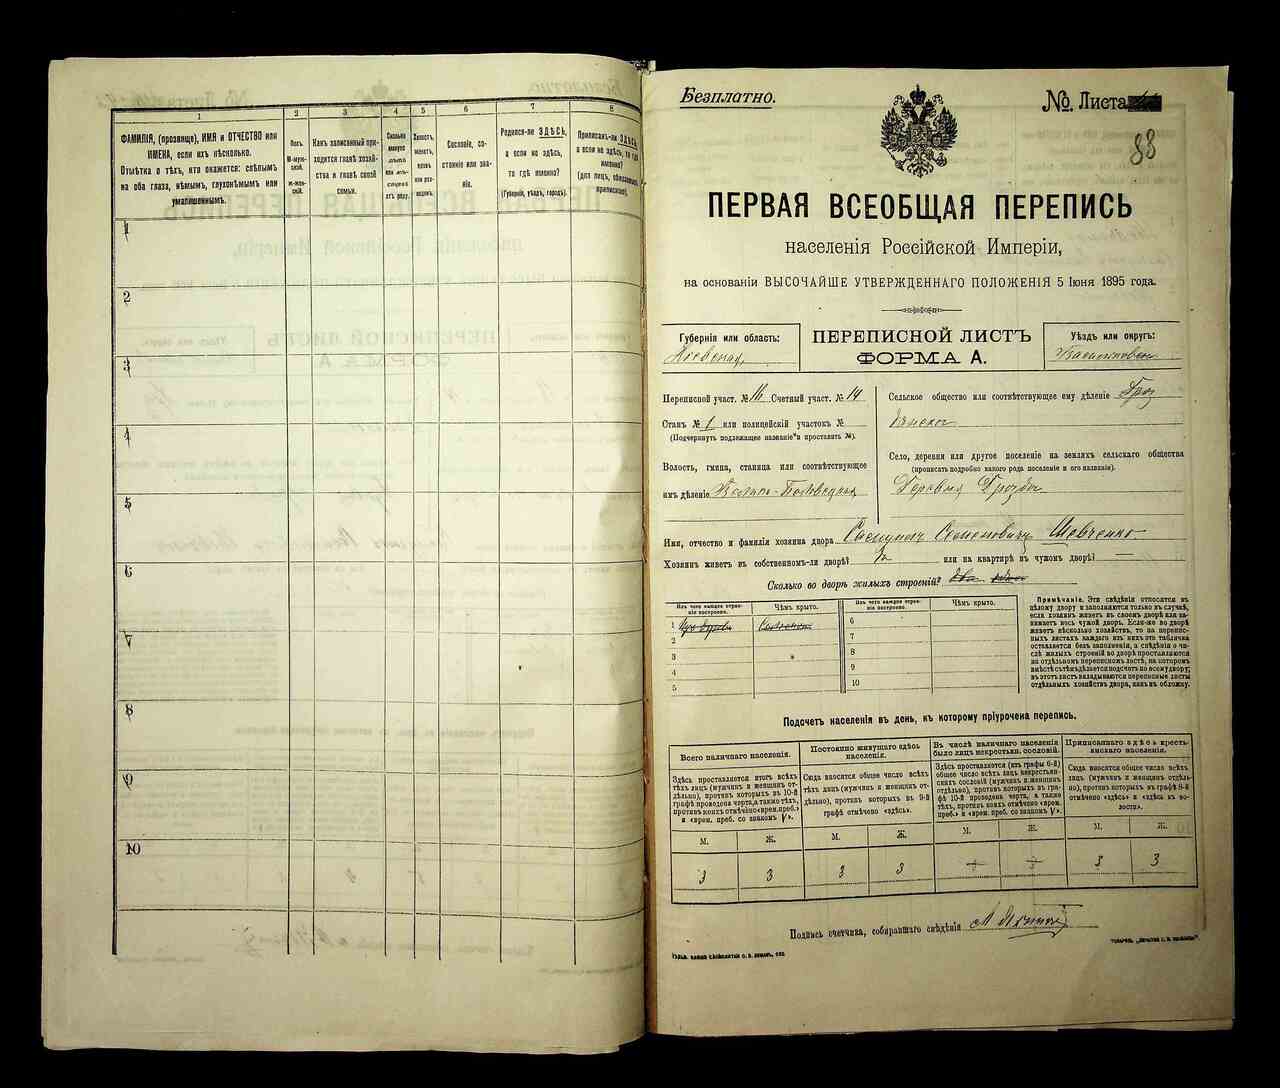 1
2
3
4
5
6
7
8
ФАМИЛІЯ, (прозвище), ИМЯ и ОТЧЕСТВО или
ИМЕНА, если ихъ нѣсколько.
Отмѣтка о тѣхъ, кто окажется: слѣпымъ
на оба глаза, нѣмымъ, глухонѣмымъ или
умалишеннымъ.
Полъ.
М-муж-
ской.
Ж-жен-
скій.
Какъ записанный при-
ходится главѣ хозяй-
ства и главѣ своей
семьи.
Сколько
минуло
лѣтъ
или мѣ-
сяцевъ
отъ роду.
Холостъ,
женатъ,
вдовъ
или раз-
веденъ.
Сословіе, со-
стояніе или зва-
ніе.
Родился-ли ЗДѢСЬ,
а если не здѣсь,
то гдѣ именно?
(Губернія, уѣздъ, городъ).
Приписанъ-ли ЗДѢСЬ,
а если не здѣсь, то гдѣ
именно?
(для лицъ, обязанныхъ
припискою).
1
2
3
4
5
6
7
8
9
10
Безплатно.
№ Листа
88
ПЕРВАЯ ВСЕОБЩАЯ ПЕРЕПИСЬ
населенія Россійской Имперіи,
на основаніи ВЫСОЧАЙШЕ УТВЕРЖДЕННАГО ПОЛОЖЕНІЯ 5 Іюня 1895 года.
Губернія или область:
Кіевская
ПЕРЕПИСНОЙ ЛИСТЪ
ФОРМА А.
Уѣздъ или округъ:
Васильковскій
Переписной участ. № 16 Счетный участ. № 14
Станъ № 1 или полицейскій участокъ №
(Подчеркнуть подлежащее названіе и проставить №).
Волость, гмина, станица или соотвѣтствующее
имъ дѣленіе Велико-Половецкая
Сельское общество или соотвѣтствующее ему дѣленіе Гроз
янское
Село, деревня или другое поселеніе на земляхъ сельскаго общества
(прописать подробно какого рода поселеніе и его названіе).
Деревня
Имя, отчество и фамилія хозяина двора Семеновичъ Шевченко
Хозяинъ живетъ въ собственномъ-ли дворѣ? да или на квартирѣ въ чужомъ дворѣ? —
Сколько во дворѣ жилыхъ строеній? два
Изъ чего каждое строе-
ніе построено.
Чѣмъ крыто.
Изъ чего каждое строе-
ніе построено.
Чѣмъ крыто.
1 Изъ дерева Соломою
2
3
4
5
6
7
8
9
10
Примѣчаніе. Эти свѣдѣнія относятся къ
цѣлому двору и заполняются только въ случаѣ,
если хозяинъ живетъ въ своемъ дворѣ или за-
нимаетъ весь чужой дворъ. Если-же во дворѣ
живетъ нѣсколько хозяйствъ, то на перепис-
ныхъ листахъ каждаго изъ нихъ эта табличка
оставляется безъ заполненія, а свѣдѣнія о чи-
слѣ жилыхъ строеній во дворѣ проставляются
на отдѣльномъ переписномъ листѣ, на которомъ
вмѣстѣ съ тѣмъ дѣлается подсчетъ по всему двору;
въ этотъ листъ вкладываются переписные листы
отдѣльныхъ хозяйствъ двора, какъ въ обложку.
Подсчетъ населенія въ день, къ которому пріурочена перепись.
Всего наличнаго населенія.
Здѣсь проставляется итогъ всѣхъ
тѣхъ лицъ (мужчинъ и женщинъ от-
дѣльно), противъ которыхъ въ 10-й
графѣ проведена черта, а также тѣхъ,
противъ коихъ отмѣчено «врем. преб.»
и «врем. преб. со знакомъ V».
Постоянно живущаго здѣсь
населенія.
Сюда вносится общее число всѣхъ
тѣхъ лицъ (мужчинъ и женщинъ от-
дѣльно), противъ которыхъ въ 9-й
графѣ отмѣчено «здѣсь».
Въ числѣ наличнаго населенія
было лицъ некрестьян. сословій.
Здѣсь проставляется (изъ графы 6-й)
общее число всѣхъ лицъ некрестьян-
скихъ сословій (мужчинъ и женщинъ
отдѣльно), противъ которыхъ въ гра-
фѣ 10-й проведена черта, а также
тѣхъ, противъ коихъ отмѣчено «врем.
преб.» и «врем. преб. со знакомъ V».
Приписаннаго здѣсь кресть-
янскаго населенія.
Сюда вносится общее число всѣхъ
лицъ (мужчинъ и женщинъ отдѣль-
но), противъ которыхъ въ графѣ 8-й
отмѣчено «здѣсь» и «здѣсь въ во-
лости».
М. Ж. М. Ж. М. Ж. М. Ж.
3 3 3 3 — — 3 3
Подпись счетчика, собиравшаго свѣдѣнія